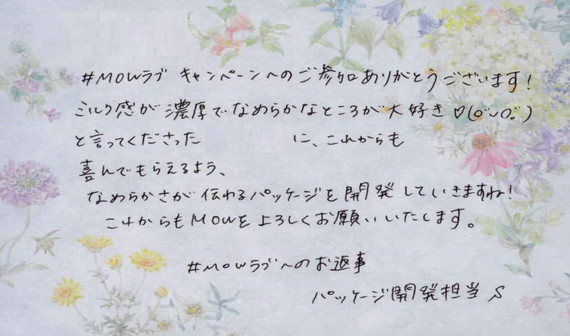 #MOWラブ キャンペーンへのご参加ありがとうございます!
ミルク感が濃厚でなめらかなところが大好き♡(o˘◡˘o)
と言ってくださった に、これからも
喜んでもらえるよう、
なめらかさが伝わるパッケージを開発していきますね!
これからもMOWを よろしくお願いいたします。
#MOWラブへのお返事
パッケージ開発担当 S